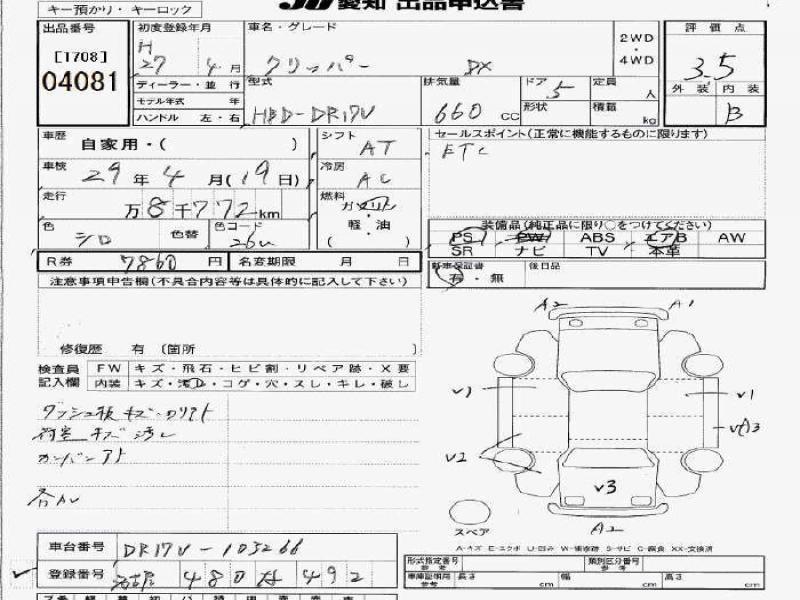 キー預かり・キーロック
JU愛知 出品申込書
出品番号 [1708] 04081
初度登録年月 H 27 4月
ディーラー・並行
モデル年式 年
ハンドル 左・右
車名・グレード クリッパー DX
2WD・4WD
評価点 3.5
外装 内装 B
型式 HBD-DR17V
排気量 660 CC
ドア 5
形状
定員 人
積載 kg
車歴 自家用・( )
シフト AT
セールスポイント(正常に機能するものに限ります)
ETC
車検 29年4月(19日)
冷房 AC
走行 万8千772km
燃料 ガソリン・軽・油 ( )
色 シロ 色替 色コード 26U
装備品(純正品に限り○をつけてください)
PS PW ABS エアB AW
SR ナビ TV 本革
R券 7860円 名変期限 月 日
新車保証書 有・無 後日品
注意事項申告欄(不具合内容等は具体的に記入して下さい)
修復歴 有 (箇所 )
検査員記入欄 FW キズ・飛石・ヒビ割・リペア跡・X要
内装 キズ・汚れ・コゲ・穴・スレ・キレ・破し
ダッシュ板 キズ
荷室 キズ 汚レ
カンバンアト
A2 A1
V1 V1
V2
V3
A2
スペア
A-キズ E-エクボ U-凹み W-補修跡 S-サビ C-腐食 XX-交換済
車台番号 DR17V-103266
登録番号 名古屋 480 せ 492
形式指定番号 参考
類別区分番号 参考
車庫証明用 参考 長さ cm 幅 cm 高さ cm